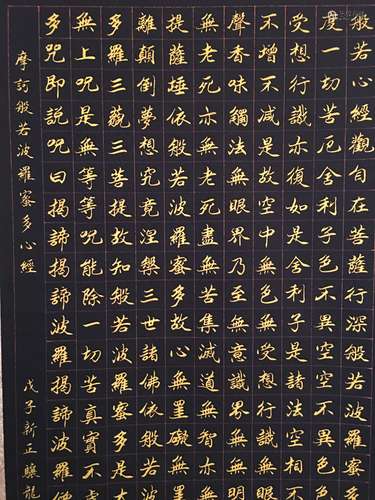 般若心經觀自在菩薩行深般若波羅蜜多
度一切苦厄舍利子色不異空空不異色色
受想行識亦復如是舍利子是諸法空相不
不增不减是故空中無色無受想行識無眼
聲香味觸法無眼界乃至無意識界無無明
無老死亦無老死盡無苦集滅道無智亦無
提薩埵依般若波羅蜜多故心無罣礙無罣
離顛倒夢想究竟涅槃三世諸佛依般若波
多羅三藐三菩提故知般若波羅蜜多是大
無上呪是無等等呪能除一切苦真實不虛
多呪即説呪曰揭諦揭諦波羅揭諦波羅
摩訶般若波羅蜜多心經
戊子新正驥龍